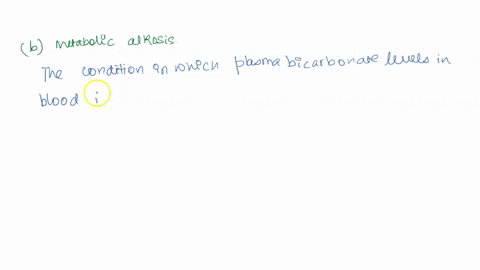 (b) Metabolic alkosis
The condition in which plasma bicarbonate levels in
blood i